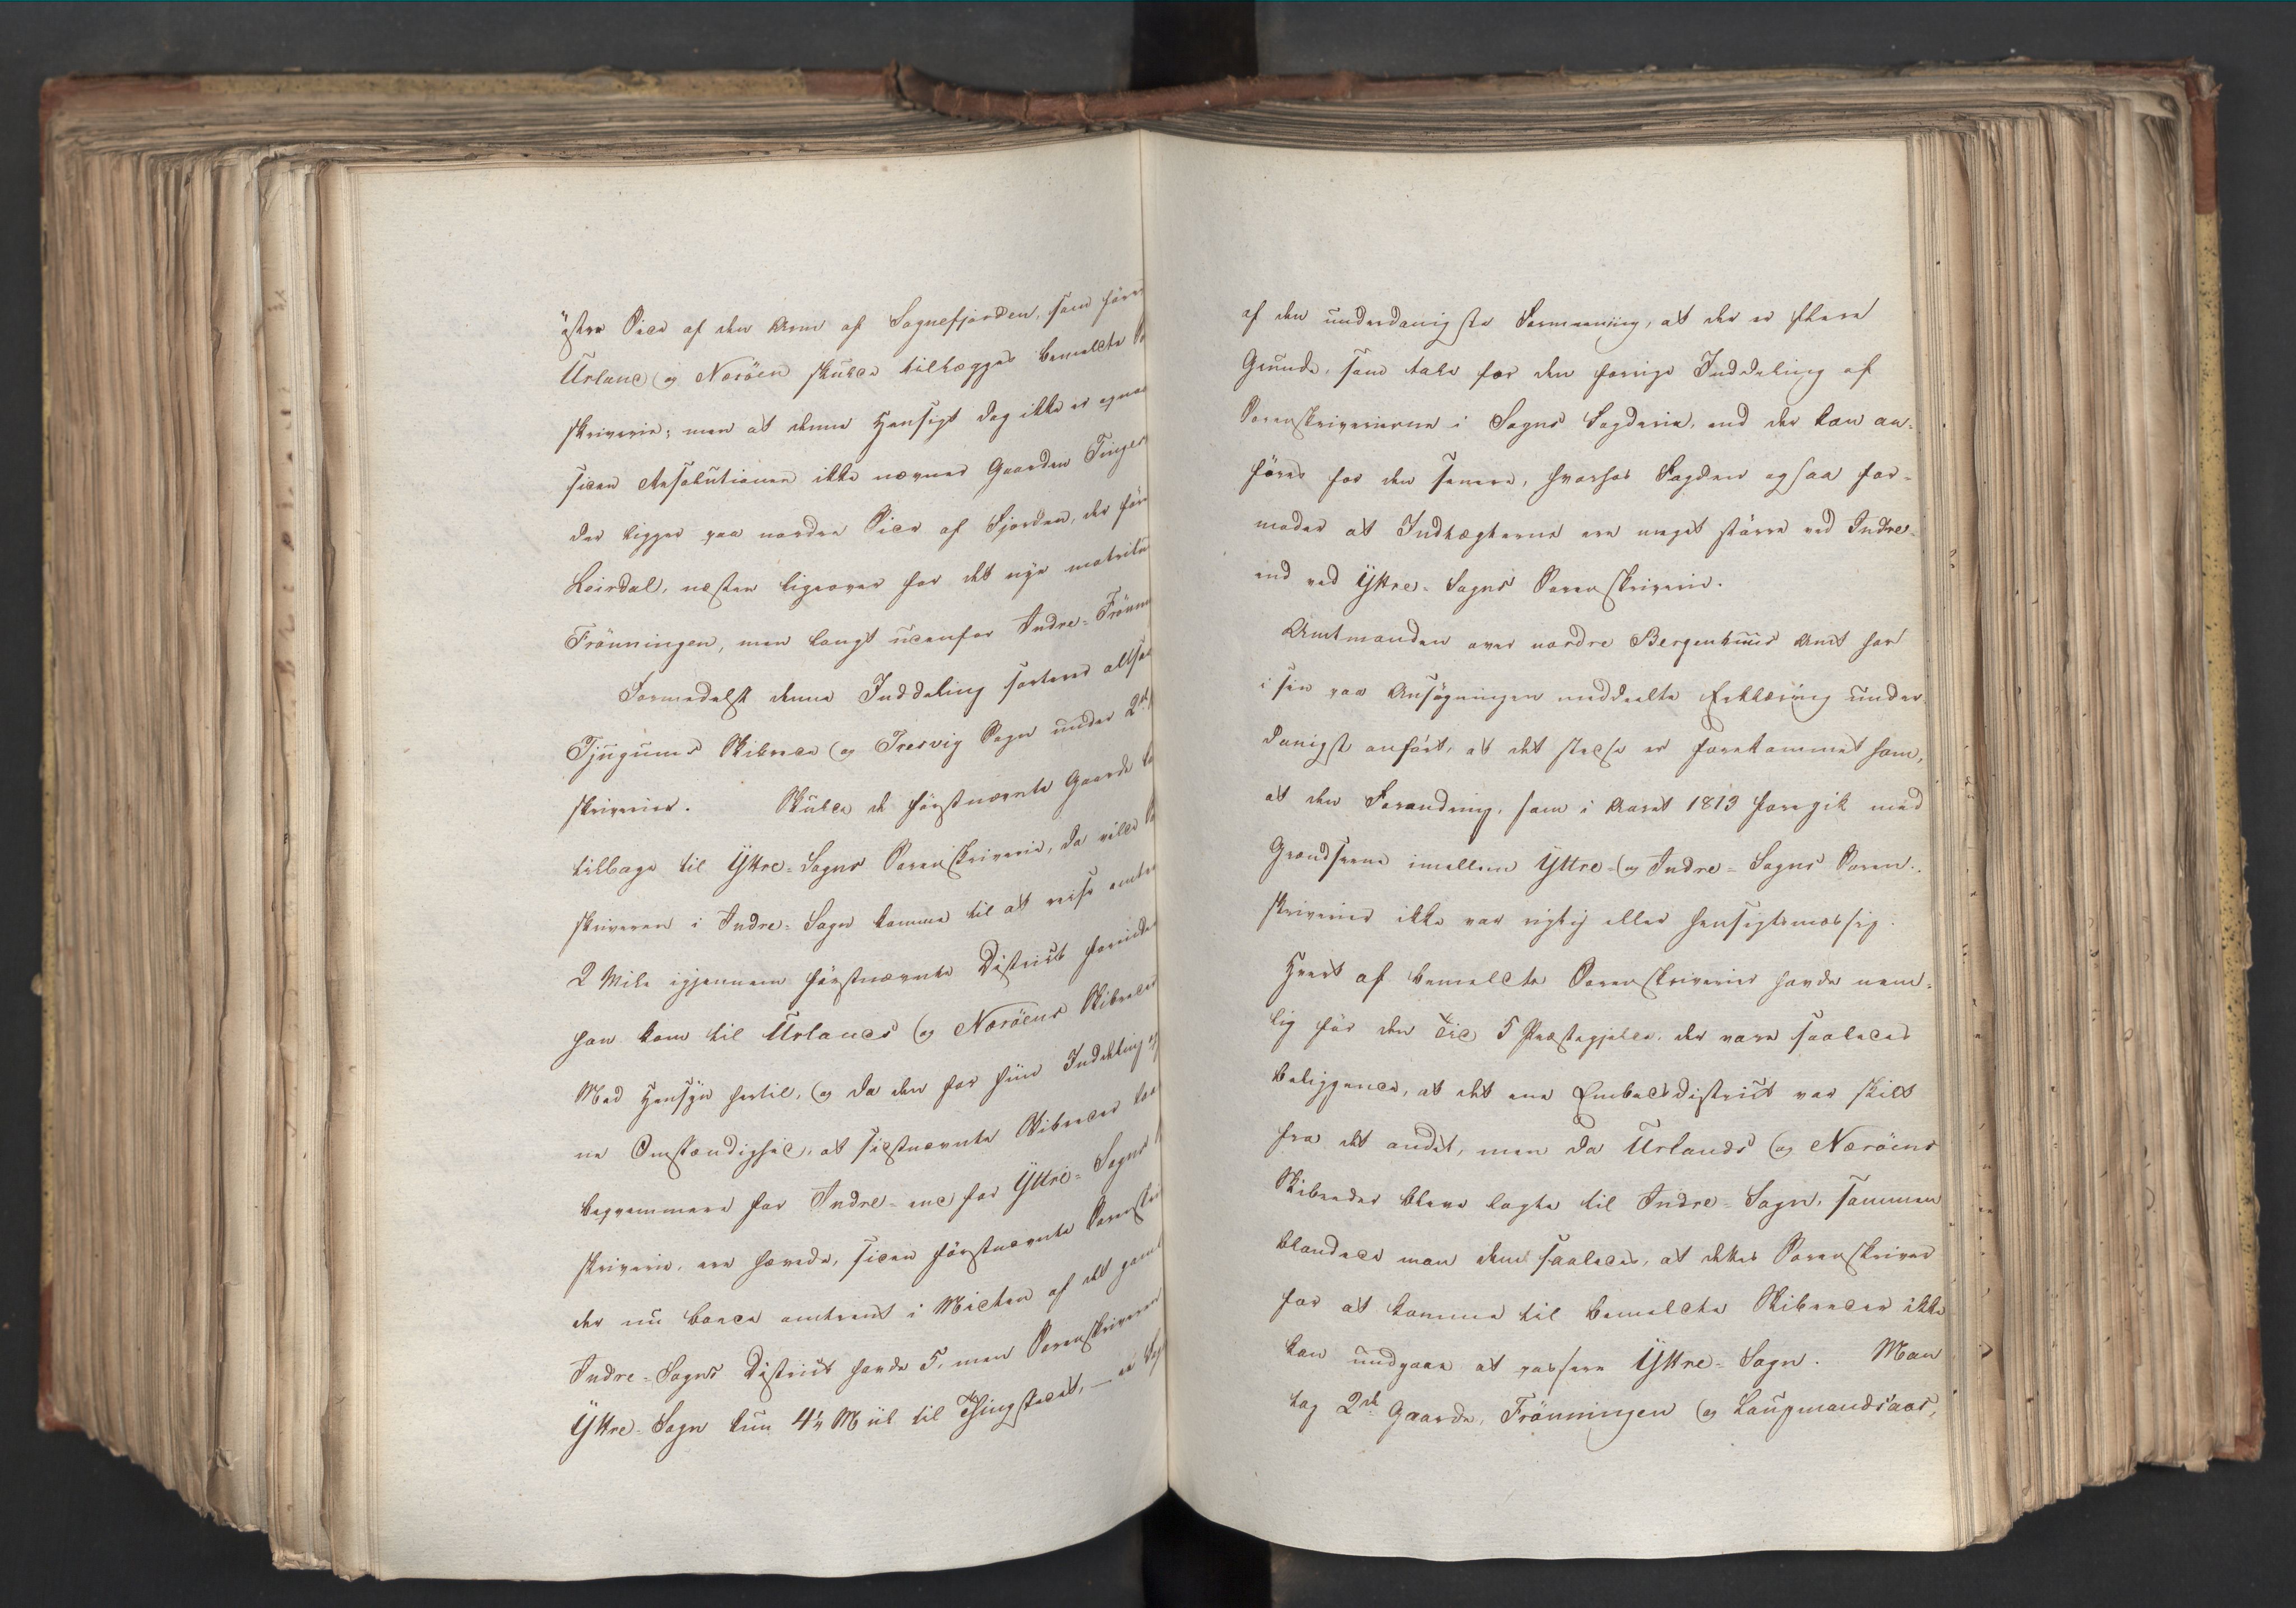 östre Side af den Arm af Sognefjorden, som fører
Urland og Nerøen skulde tillægges bemeldte
skriverie; men at denne Hensigt dog ikke er
siden Resolutionen ikke nævner Gaarden
der ligger paa nordre Side af Fjorden, der
Leirdal, næsten ligeover for det nye
Frønningen, men langt udenfor Indre-
Formedelst denne Inddeling sorterer altsaa
Tjugums Skibrede og Fresvig Sogn under 2de
skriverier. Skulde de førstnævnte Gaarde
tilbage til Yttre-Sogns Sorenskriverie, da vilde
skriveren i Indre-Sogn komme til at reise
2 Mile igjennem førstnævnte District forinden
han kom til Urlands og Nerøens Skibreder
Med Hensyn hertil, og da den for hiin Inddeling
ne Omstændighed, at sidstnævnte Skibreder
beqvemmere for Indre- end for Yttre-Sogns
skriverie, ere hævede, siden førstnævnte
der nu boede omtrent i Midten af det gamle
Indre-Sogns District havde 5, men Sorenskriveren
Yttre-Sogn kun 4½ Miil til Thingstedet, —
af den underdanigste Formeening, at der er flere
Grunde, som tale for den forrige Inddeling af
Sorenskriverierne i Sogns Fogderie, end der kan an-
føres for den senere, hvorhos Fogden ogsaa for-
moder at Indtægterne ere meget større ved Indre-
end ved Yttre-Sogns Sorenskriverie.
Amtmanden over nordre Bergenhuus Amt har
i sin paa Ansøgningen meddeelte Erklæring under-
danigst anført, at det stedse er forekommet ham,
at den Forandring, som i Aaret 1813 foregik med
Grændserne imellem Yttre- og Indre-Sogns Soren-
skriverier ikke var rigtig eller hensigtsmæssig.
Hvert af bemeldte Sorenskriverier havde nem-
lig før den Tid 5 Præstegjelde, der vare saaledes
beliggende, at det ene Embedsdistrict var skilt
fra det andet, men da Urlands og Nærøens
Skibreder bleve lagte til Indre-Sogn, sammen
blandede man dem saaledes, at dettes Sorenskriver
for at komme til bemeldte Skibreder ikke
kan undgaae at passere Yttre-Sogn. Man
tog 2de Gaarde, Frønningen og Laugmandsaas,